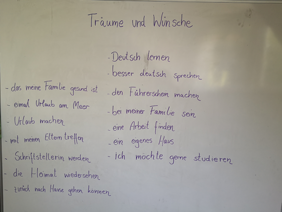 Träume und Wünsche
- das meine Familie gesund ist
- einmal Urlaub am Meer
- Urlaub machen
- mit meinen Eltern treffen
- Schriftstellerin werden
- die Heimat wiedersehen
- nach Hause gehen können
- Deutsch lernen
- besser deutsch sprechen
- den Führerschein machen
- bei meiner Familie sein
- eine Arbeit finden
- ein eigenes Haus
- Ich möchte gerne studieren